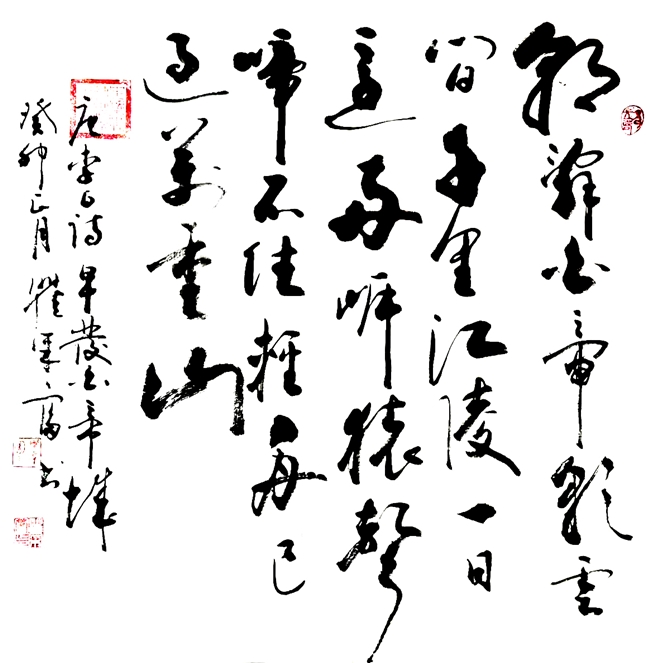 朝辭白帝彩雲
間千里江陵一日
還兩岸猿聲
啼不住輕舟已
過萬重山
唐李白诗早發白帝城
癸卯正月瞿富书